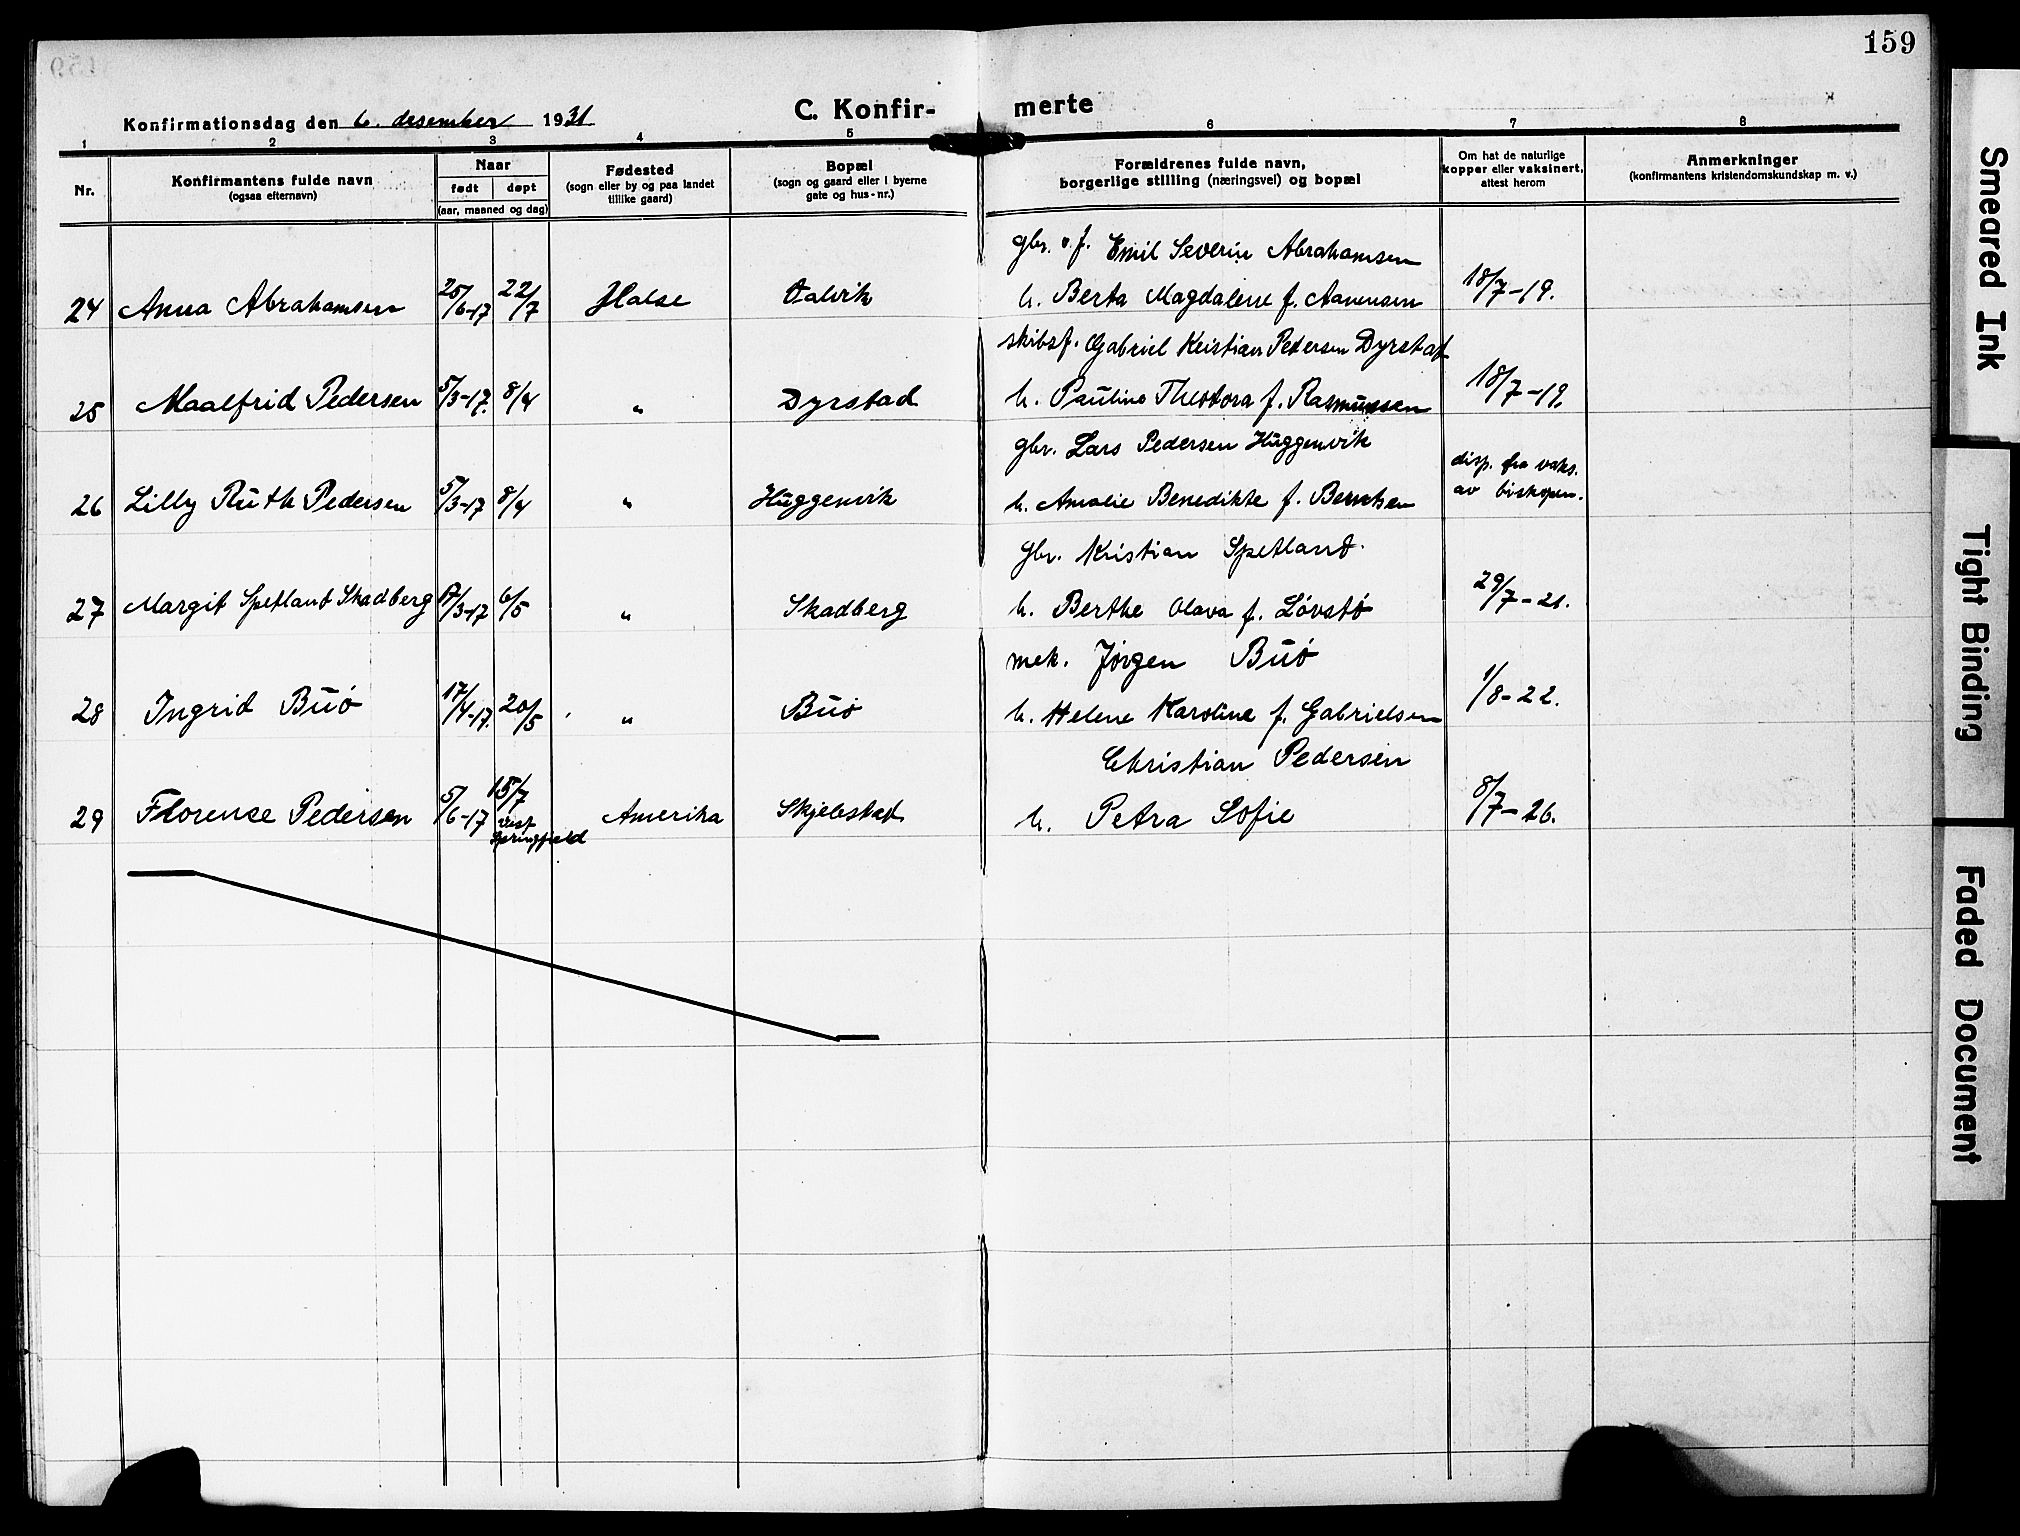 159
Konfirmationsdag den 6. desember 1931
C. Konfir- merte
1 2 3 4 5 6 7 8
Nr.
Konfirmantens fulde navn
(ogsaa efternavn)
Naar
født døpt
(aar, maaned og dag)
Fødested
(sogn eller by og paa landet
tillike gaard)
Bopæl
(sogn og gaard eller i byerne
gate og hus-nr.)
Forældrenes fulde navn,
borgerlige stilling (næringsvei) og bopæl
Om hat de naturlige
kopper eller vaksinert,
attest herom
Anmerkninger
(konfirmantens kristendomskundskap m. v.)
gbr. v. f. Emil Severin Abrahamsen
24 Anna Abrahamsen 25/6-17 22/7 Halse Valvik h. Berta Magdalene f. Aanensen 18/7-19.
skibsf. Gabriel Kristian Petersen Dyrstad
25 Maalfrid Pedersen 5/3-17. 8/4 " Dyrstad h. Pauline Theodora f. Rasmussen 18/7-19.
gbr. Lars Pedersen Huggenvik
26 Lilly Ruth Pedersen 5/3-17 8/4 " Huggenvik h. Amalie Benedikte f. Berntsen disp. fra vaks.
av biskopen.
gbr. Kristian Spetland.
27 Margit Spetland Skadberg 17/3-17 6/5 " Skadberg h. Berthe Olava f. Løvstø 29/7-21.
mek. Jørgen Buø
28 Ingrid Buø 17/4-17. 20/5 " Buø h. Helene Karoline f. Gabrielsen 1/8-22.
Christian Pedersen
29 Florense Pedersen 5/6-17 15/7 Amerika Skjebstad h. Petra Sofie 8/7-26.
vest
Springfield
Smeared Ink
Tight Binding
Faded Document